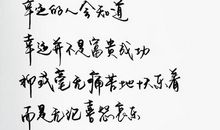 幸运的人会知道
幸运并不是富贵成功
抑或毫无痛苦地快乐着
而是无论喜怒哀乐